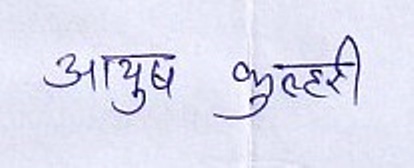 आयुष कुल्हरी